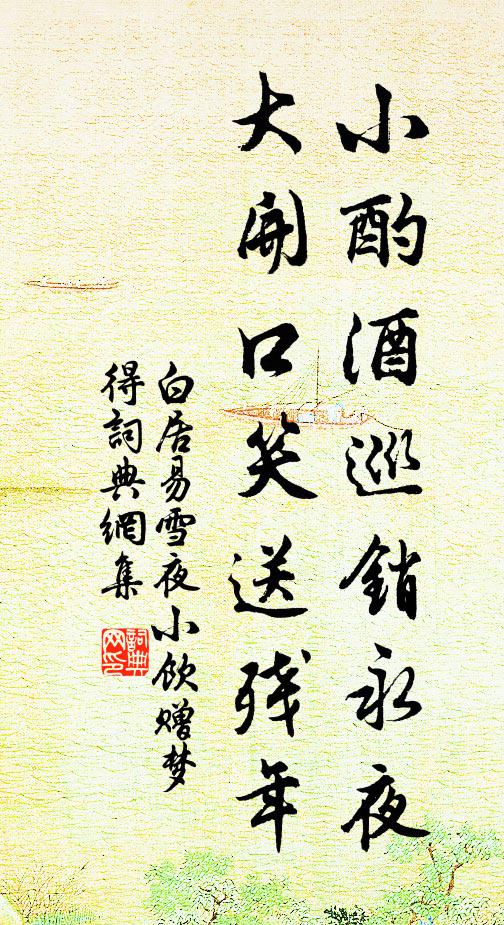 小酌酒巡銷永夜
大開口笑送殘年
白居易雪夜小飲贈梦
得詞典網集
詞典
网印